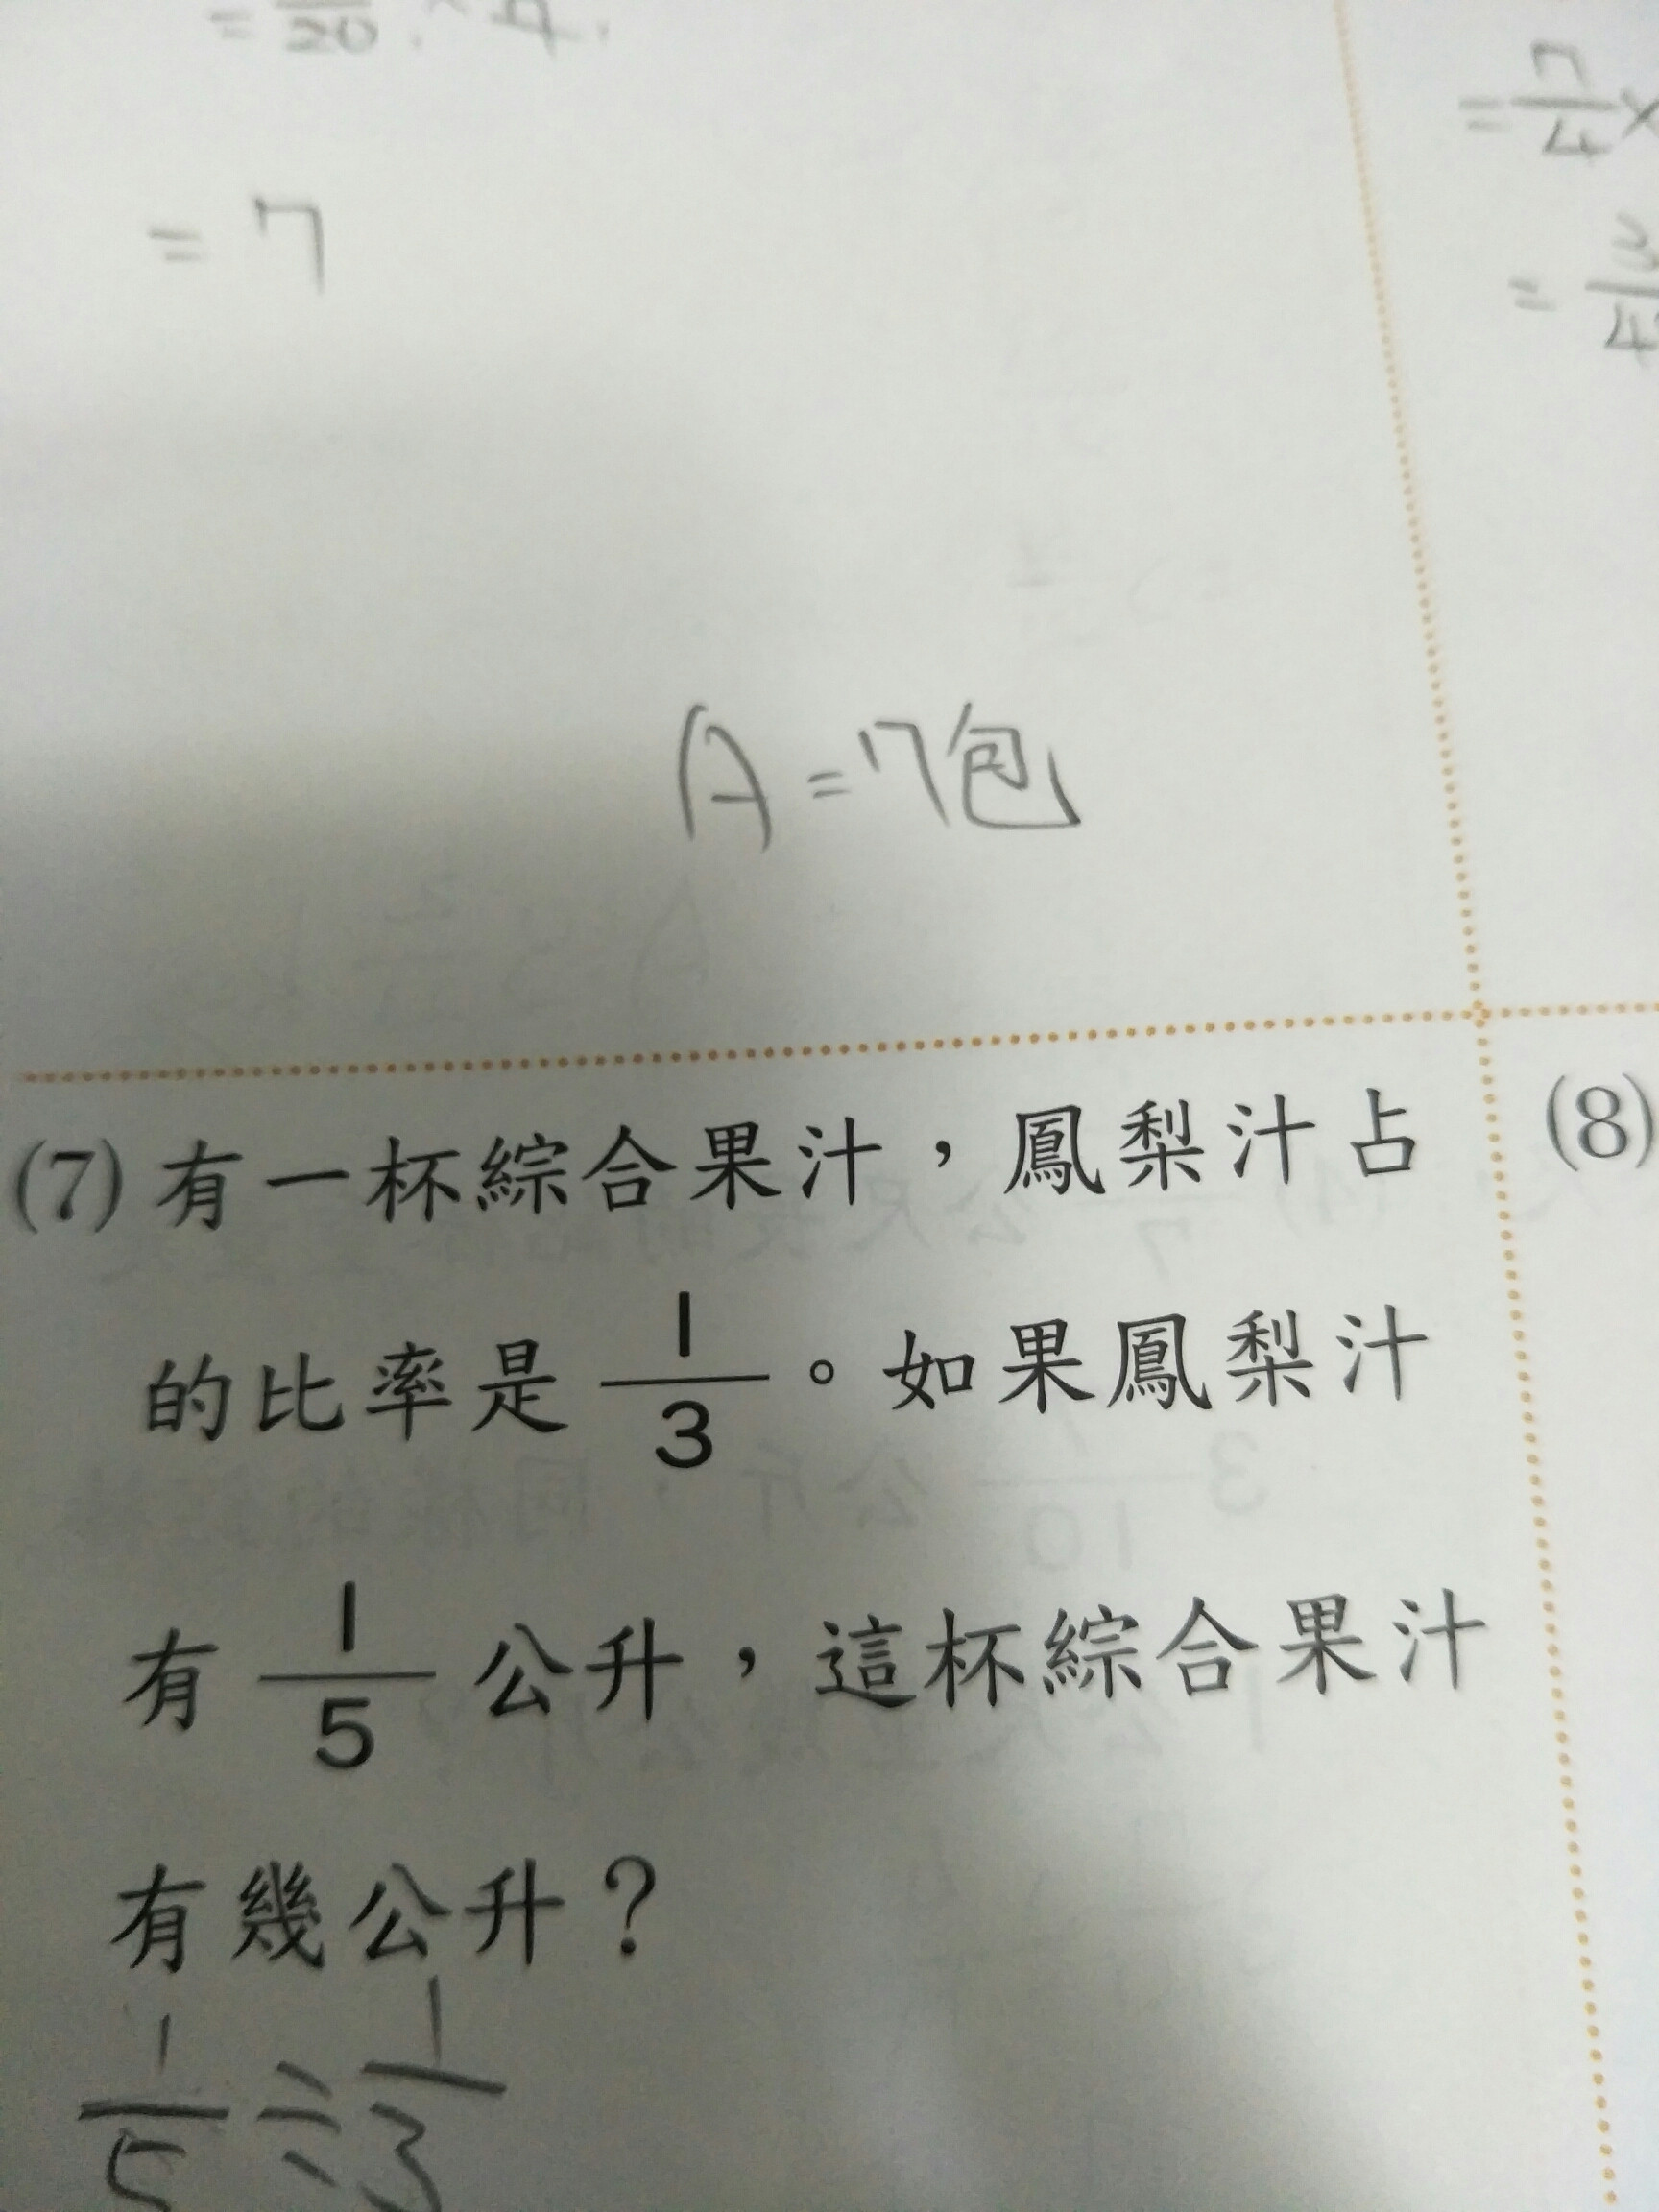 = 7
= 17/4 ×
A=7包
(7) 有一杯綜合果汁，鳳梨汁占
的比率是 1/3 。如果鳳梨汁
有 1/5 公升，這杯綜合果汁
有幾公升？
1/5 ÷ 1/3
(8)